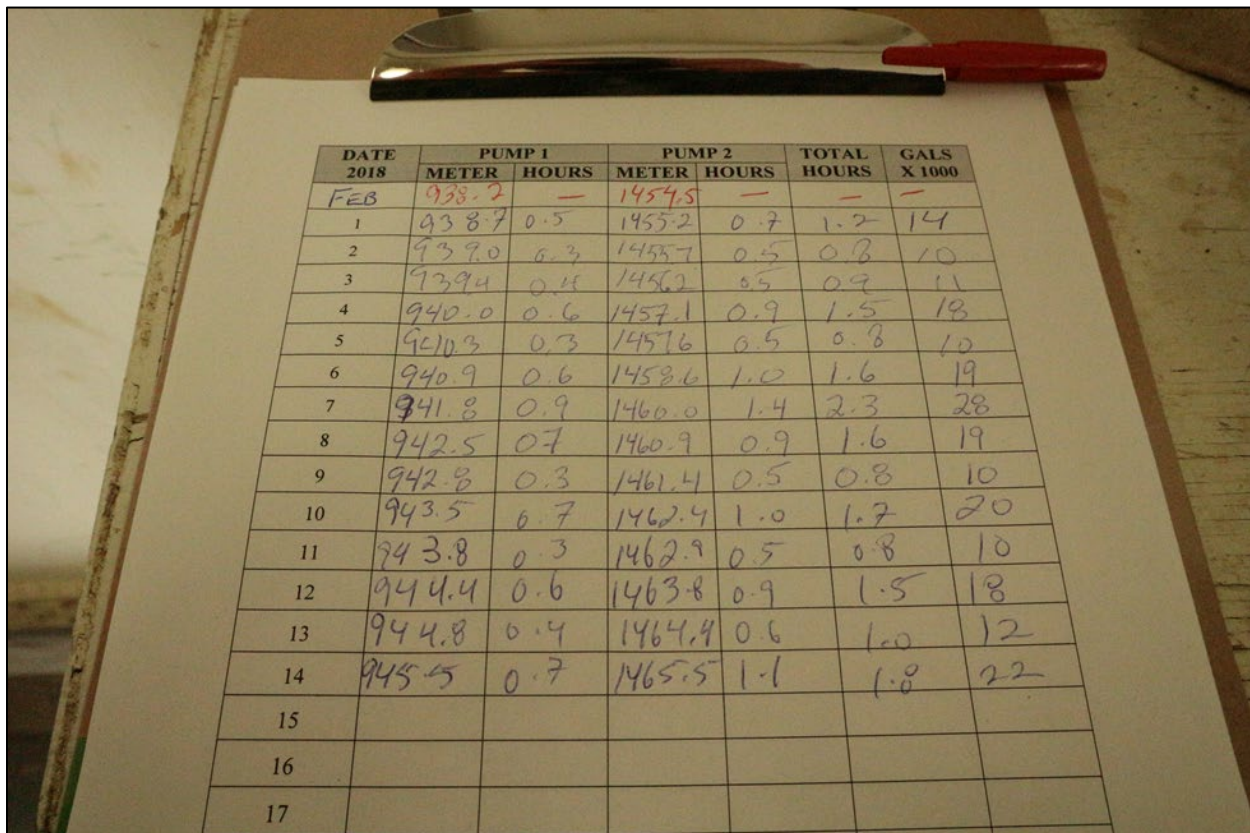 DATE 2018 PUMP 1 PUMP 2 TOTAL HOURS GALS X 1000
METER HOURS METER HOURS
FEB 938.2 — 1454.5 — — —
1 938.7 0.5 1455.2 0.7 1.2 14
2 939.0 0.3 1455.7 0.5 0.8 10
3 939.4 0.4 1456.2 0.5 0.9 11
4 940.0 0.6 1457.1 0.9 1.5 18
5 940.3 0.3 1457.6 0.5 0.8 10
6 940.9 0.6 1458.6 1.0 1.6 19
7 941.8 0.9 1460.0 1.4 2.3 28
8 942.5 0.7 1460.9 0.9 1.6 19
9 942.8 0.3 1461.4 0.5 0.8 10
10 943.5 0.7 1462.4 1.0 1.7 20
11 943.8 0.3 1462.9 0.5 0.8 10
12 944.4 0.6 1463.8 0.9 1.5 18
13 944.8 0.4 1464.4 0.6 1.0 12
14 945.5 0.7 1465.5 1.1 1.8 22
15
16
17